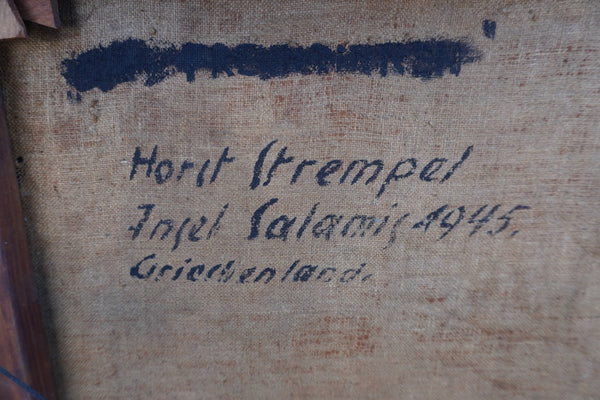 Horst Strempel
Insel Salamis 1945.
Griechenland.